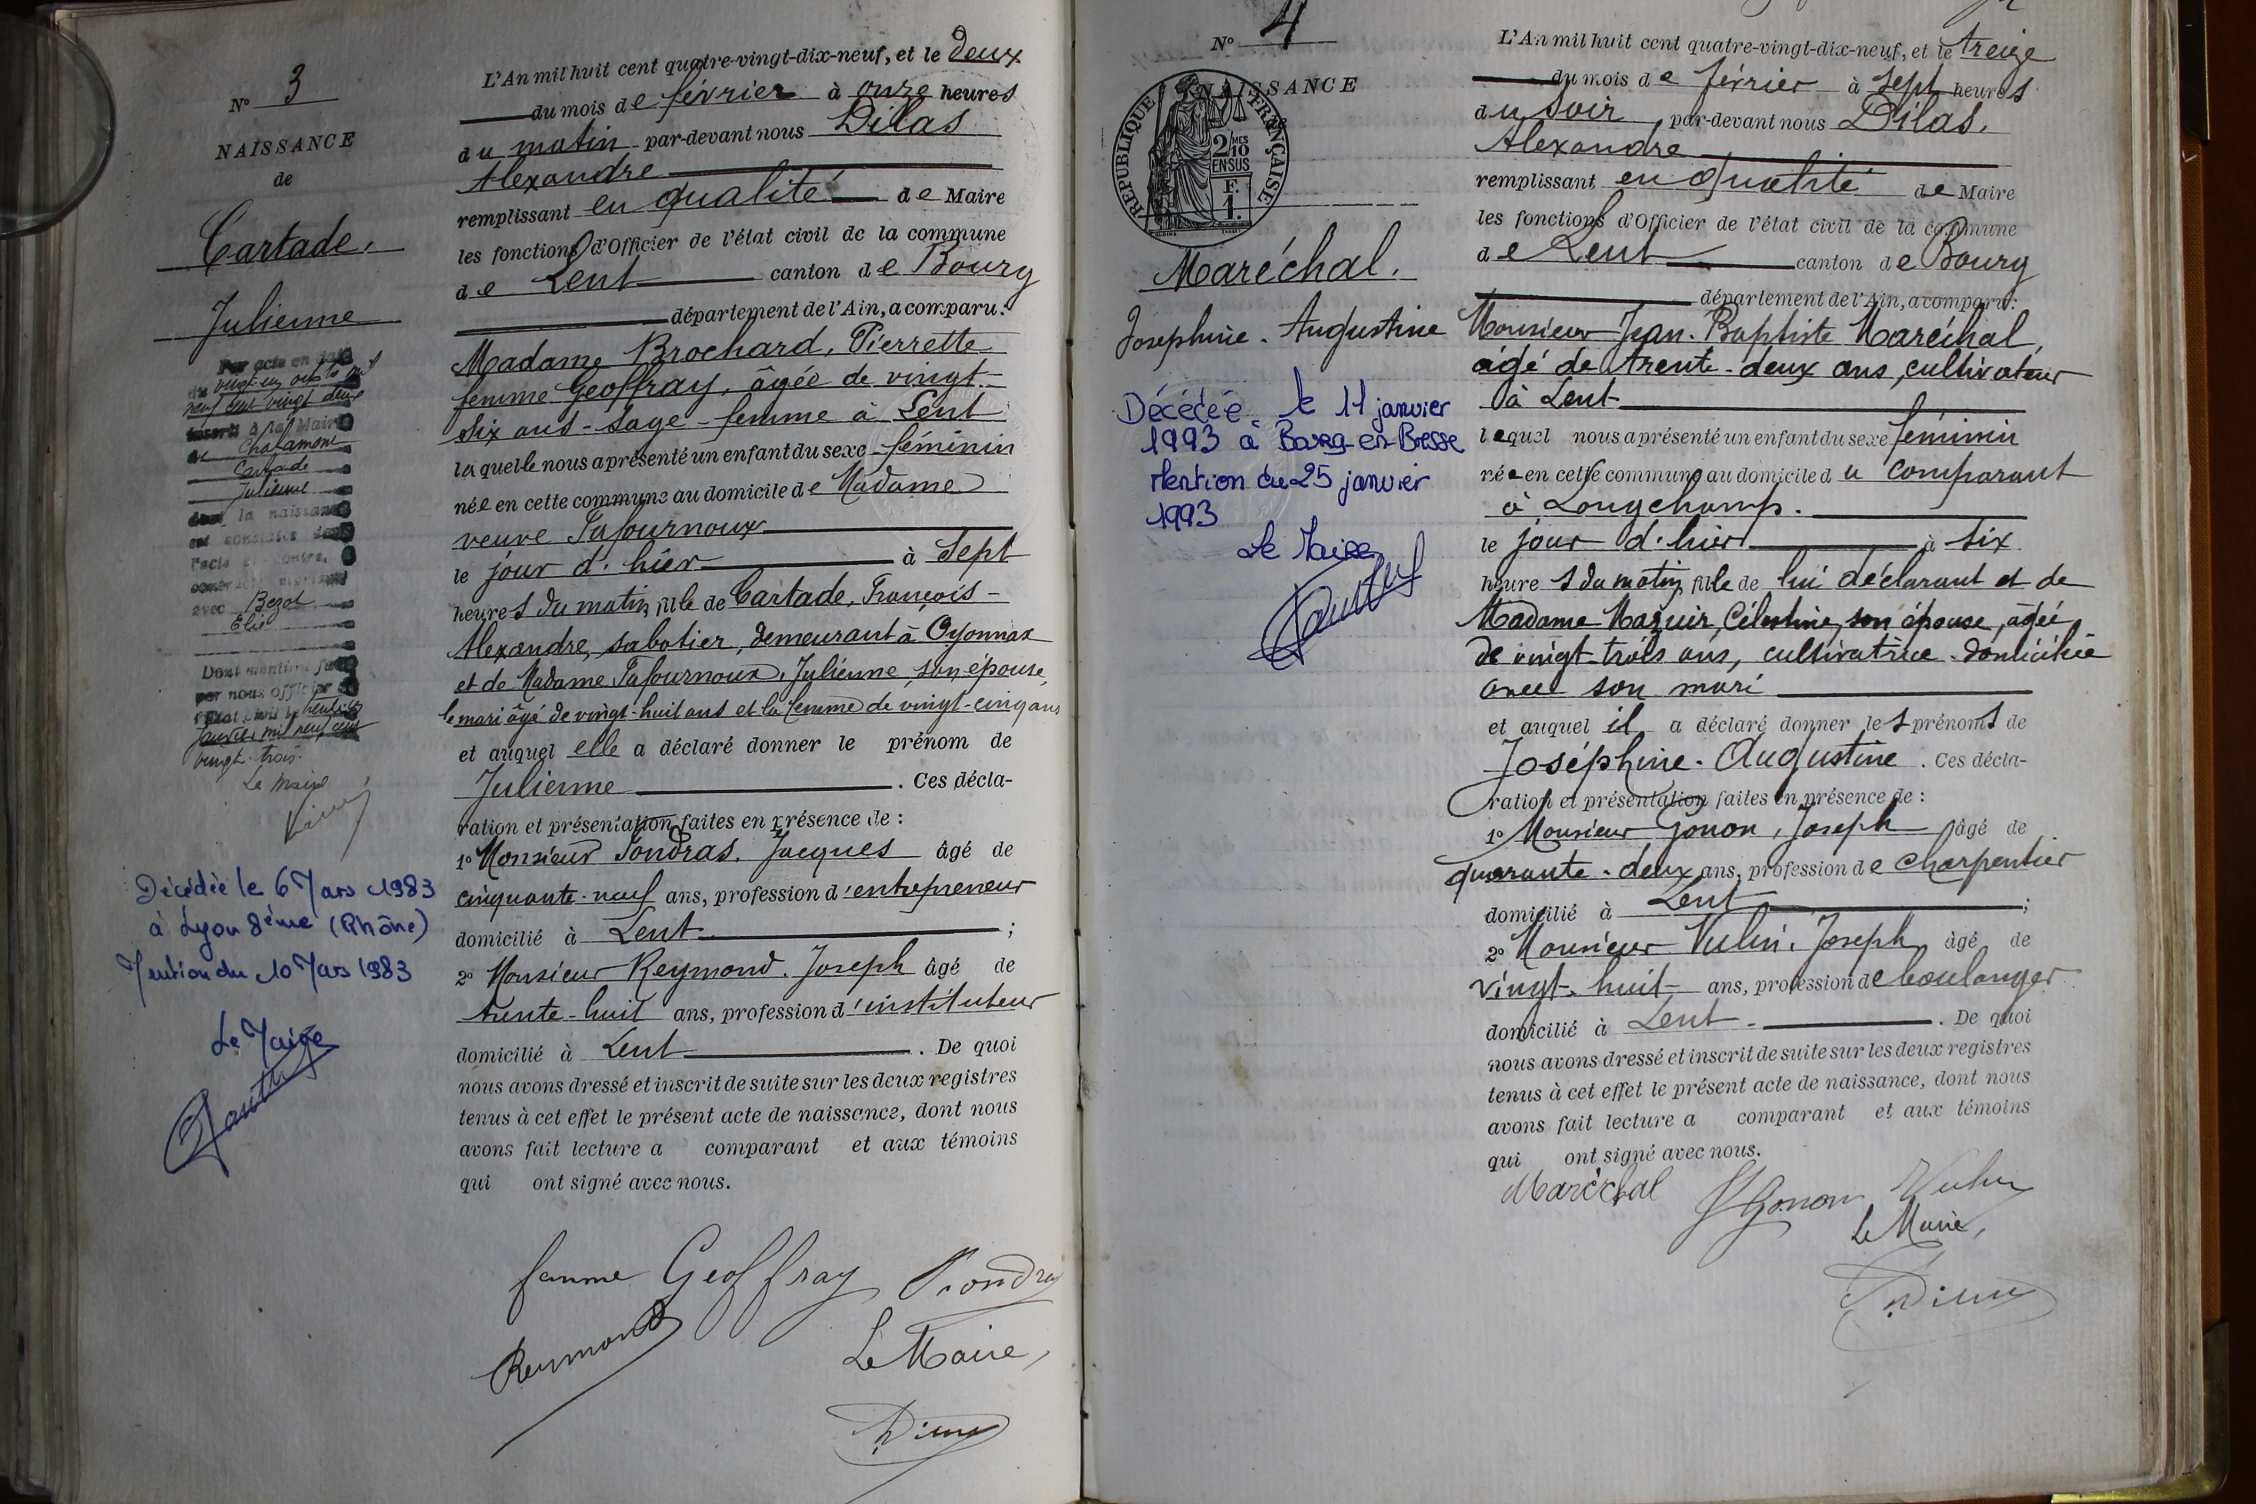 N° 3
NAISSANCE
de
Cartade,
Julienne
Par acte en date
du vingt un août mil
neuf cent vingt deux
inscrit à la Mairie
de Chalamont
Cartade
Julienne
dont la naissance
est constatée dans
l'acte ci-contre,
a contracté mariage
avec Bezot
Elie
Dont mention faite
par nous officier de
l'Etat civil le
janvier mil neuf cent
vingt-trois.
Le Maire
Décédée le 6 Mars 1983
à Lyon 8ème (Rhône)
Mention du 10 Mars 1983
Le Maire
L'An mil huit cent quatre-vingt-dix-neuf, et le deux
du mois de février à onze heures
du matin par-devant nous Dilas
Alexandre
remplissant en qualité de Maire
les fonctions d'Officier de l'état civil de la commune
de Lent canton de Bourg
département de l'Ain, a comparu:
Madame Brochard, Pierrette
femme Geoffray, âgée de vingt-
six ans - sage-femme à Lent
laquelle nous a présenté un enfant du sexe féminin
née en cette commune au domicile de Madame
veuve Pafournoux
le jour d'hier à sept
heures du matin, fille de Cartade, François-
Alexandre, sabotier, demeurant à Oyonnax
et de Madame Pafournoux, Julienne, son épouse,
le mari âgé de vingt-huit ans et la femme de vingt-cinq ans
et auquel elle a déclaré donner le prénom de
Julienne . Ces décla-
ration et présentation faites en présence de :
1° Monsieur Pondras, Jacques âgé de
cinquante-neuf ans, profession d'entrepreneur
domicilié à Lent ;
2° Monsieur Reymond, Joseph âgé de
trente-huit ans, profession d'instituteur
domicilié à Lent . De quoi
nous avons dressé et inscrit de suite sur les deux registres
tenus à cet effet le présent acte de naissance, dont nous
avons fait lecture a comparant et aux témoins
qui ont signé avec nous.
femme Geoffray Pondras
Reymond
Le Maire,
N° 4
NAISSANCE
RÉPUBLIQUE FRANÇAISE
2/10 MES
EN SUS
F.
1.
Maréchal.
Joséphine - Augustine
Décédée le 11 janvier
1993 à Bourg-en-Bresse
Mention du 25 janvier
1993
Le Maire
L'An mil huit cent quatre-vingt-dix-neuf, et le treize
du mois de février à sept heures
du soir, par-devant nous Dilas,
Alexandre
remplissant en qualité de Maire
les fonctions d'Officier de l'état civil de la commune
de Lent canton de Bourg
département de l'Ain, a comparu:
Monsieur Jean-Baptiste Maréchal,
âgé de trente-deux ans, cultivateur
à Lent
lequel nous a présenté un enfant du sexe féminin
née en cette commune au domicile du comparant
à Longchamp.
le jour d'hier à six
heures du matin, fille de lui déclarant et de
Madame Maguir, Célestine, son épouse, âgée
de vingt-trois ans, cultivatrice - domiciliée
avec son mari
et auquel il a déclaré donner les prénoms de
Joséphine - Augustine . Ces décla-
ration et présentation faites en présence de :
1° Monsieur Gonon, Joseph âgé de
quarante-deux ans, profession de charpentier
domicilié à Lent ;
2° Monsieur Vulin, Joseph âgé de
vingt-huit ans, profession de boulanger
domicilié à Lent . De quoi
nous avons dressé et inscrit de suite sur les deux registres
tenus à cet effet le présent acte de naissance, dont nous
avons fait lecture a comparant et aux témoins
qui ont signé avec nous.
Maréchal J Gonon Vulin
Le Maire,